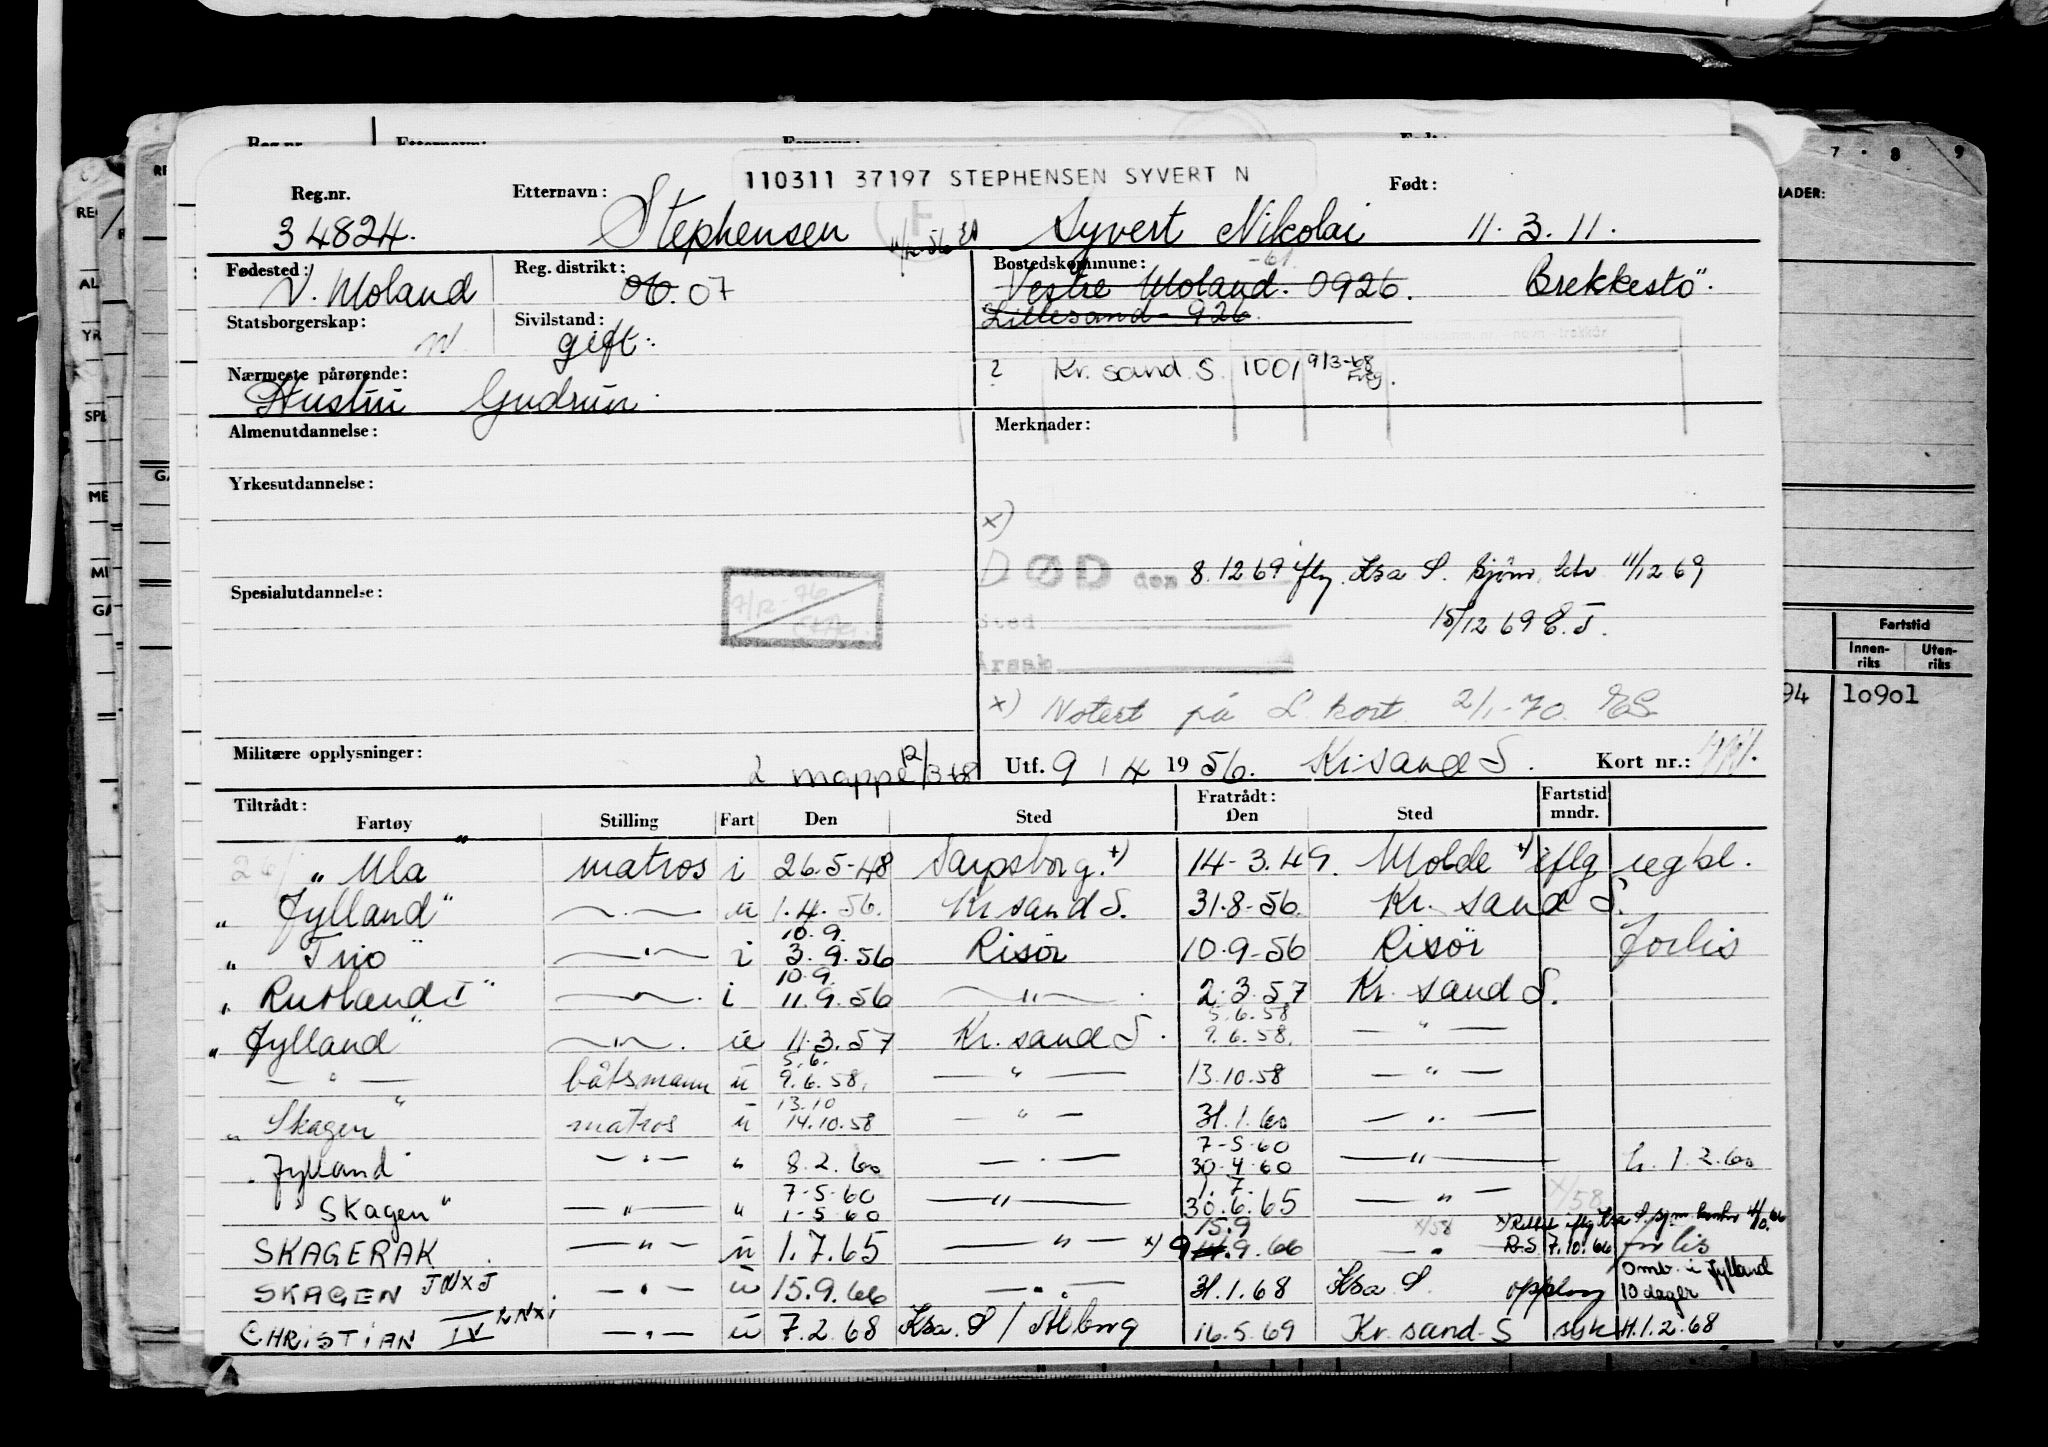 Reg.nr. Etternavn: Fornavn: Født:
110311 37197 STEPHENSEN SYVERT N
Reg.nr. Etternavn: Født:
34824. Stephensen Syvert Nikolai 11.3.11.
F
Fødested: Reg. distrikt: Bostedskommune:
V. Moland 06. 07 Vestre Moland. 0926. Brekkestö.
Statsborgerskap: Sivilstand: Lillesand - 926.
n. gift.
Nærmeste pårørende: 2 Kr. sand. S. 1001 9/3-68
Hustru Gudrun.
Almenutdannelse: Merknader:
Yrkesutdannelse:
x)
DØD den 8.12 69 iflg. Ksa S. 11/12 69
Spesialutdannelse:
Sted 15/12 69 E.J.
Årsak
x) Notert på L. kort. 2/1-70.
Militære opplysninger: 2 mappe 12/3-68 Utf. 9 / 4 19 56. Kr.sand S. Kort nr.:
Tiltrådt: Fratrådt: Fartstid
Fartøy Stilling Fart Den Sted Den Sted mndr.
"Ula" matros i 26.5-48 Sarpsborg. +) 14-3.49. Molde +) iflg regbl.
"Jylland" — " — u 1.4.56. Kr sand S. 31.8-56. Kr. sand S.
10.9.
"Trio" — " — i 3.9.56 Risör 10.9-56 Risör forlis
10.9.
"Rutland I" — " — i 11.9.56 — " — 2.3.57 Kr. sand S.
5.6.58
"Jylland" — " — u 11.3.57 Kr. sand S. 9.6.58. — " —
5.6.
— " — båtsmann u 9.6.58. — " — 13.10.58 — " —
13.10
"Skagen" matros u 14.10.58 — " — 31.1.60 — " —
7-5-60
"Jylland" — " — " 8.2.60 — " — 30.4.60 — " — h. 1.2.60
7-5-60 1.7.
"Skagen" — " — " 1-5-60 — " — 30.6.65 — " —
15.9
SKAGERAK — " — u 1.7.65 — " — x) 9.9.66 — " — R.S. 7.10.66 forlis
SKAGEN JNXJ — " — u 15.9.66 — " — 31.1.68 Ksa S. opplag Omb. i Jylland 10 dager
CHRISTIAN IV LNXI — " — u 7.2.68 Ksa. S / Ålborg 16.5.69 Kr. sand S syk H.1.2.68
7 8 9
Fartstid
Innen-riks Uten-riks
94 10901